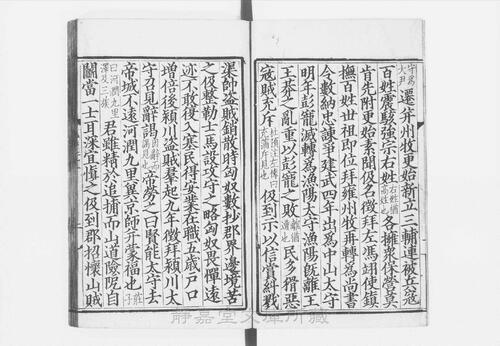 守為大尹遷并州牧更始新立三輔連被兵寇
百姓震駭強宗右姓右姓猶高姓也各擁衆保營莫
肯先附更始素聞伋名徵拜左馮翊使鎮
撫百姓世祖即位拜雍州牧再轉為尚書
令數納忠諫爭建武四年出為中山太守
明年彭寵滅轉為漁陽太守漁陽旣離王
王莽之亂重以彭寵之敗離猶遭也民多猾惡
寇賊充斥杜預注左傳曰充滿斥見也伋到示以信賞糾戮
渠帥盜賊銷散時匈奴數抄郡界邊境苦
之伋整勒士馬設攻守之略匈奴畏憚遠
迹不敢復入塞民得安業在職五歲戶口
增倍後潁川盜賊羣起九年徵拜潁川太
守召見辭謁帝勞之曰賢能太守去
帝城不遠河潤九里冀京師并蒙福也莊子
曰河潤九里澤及三族君雖精於追捕而山道險阨自
闘當一士耳深宜慎之伋到郡招懷山賊
静嘉堂文庫所藏